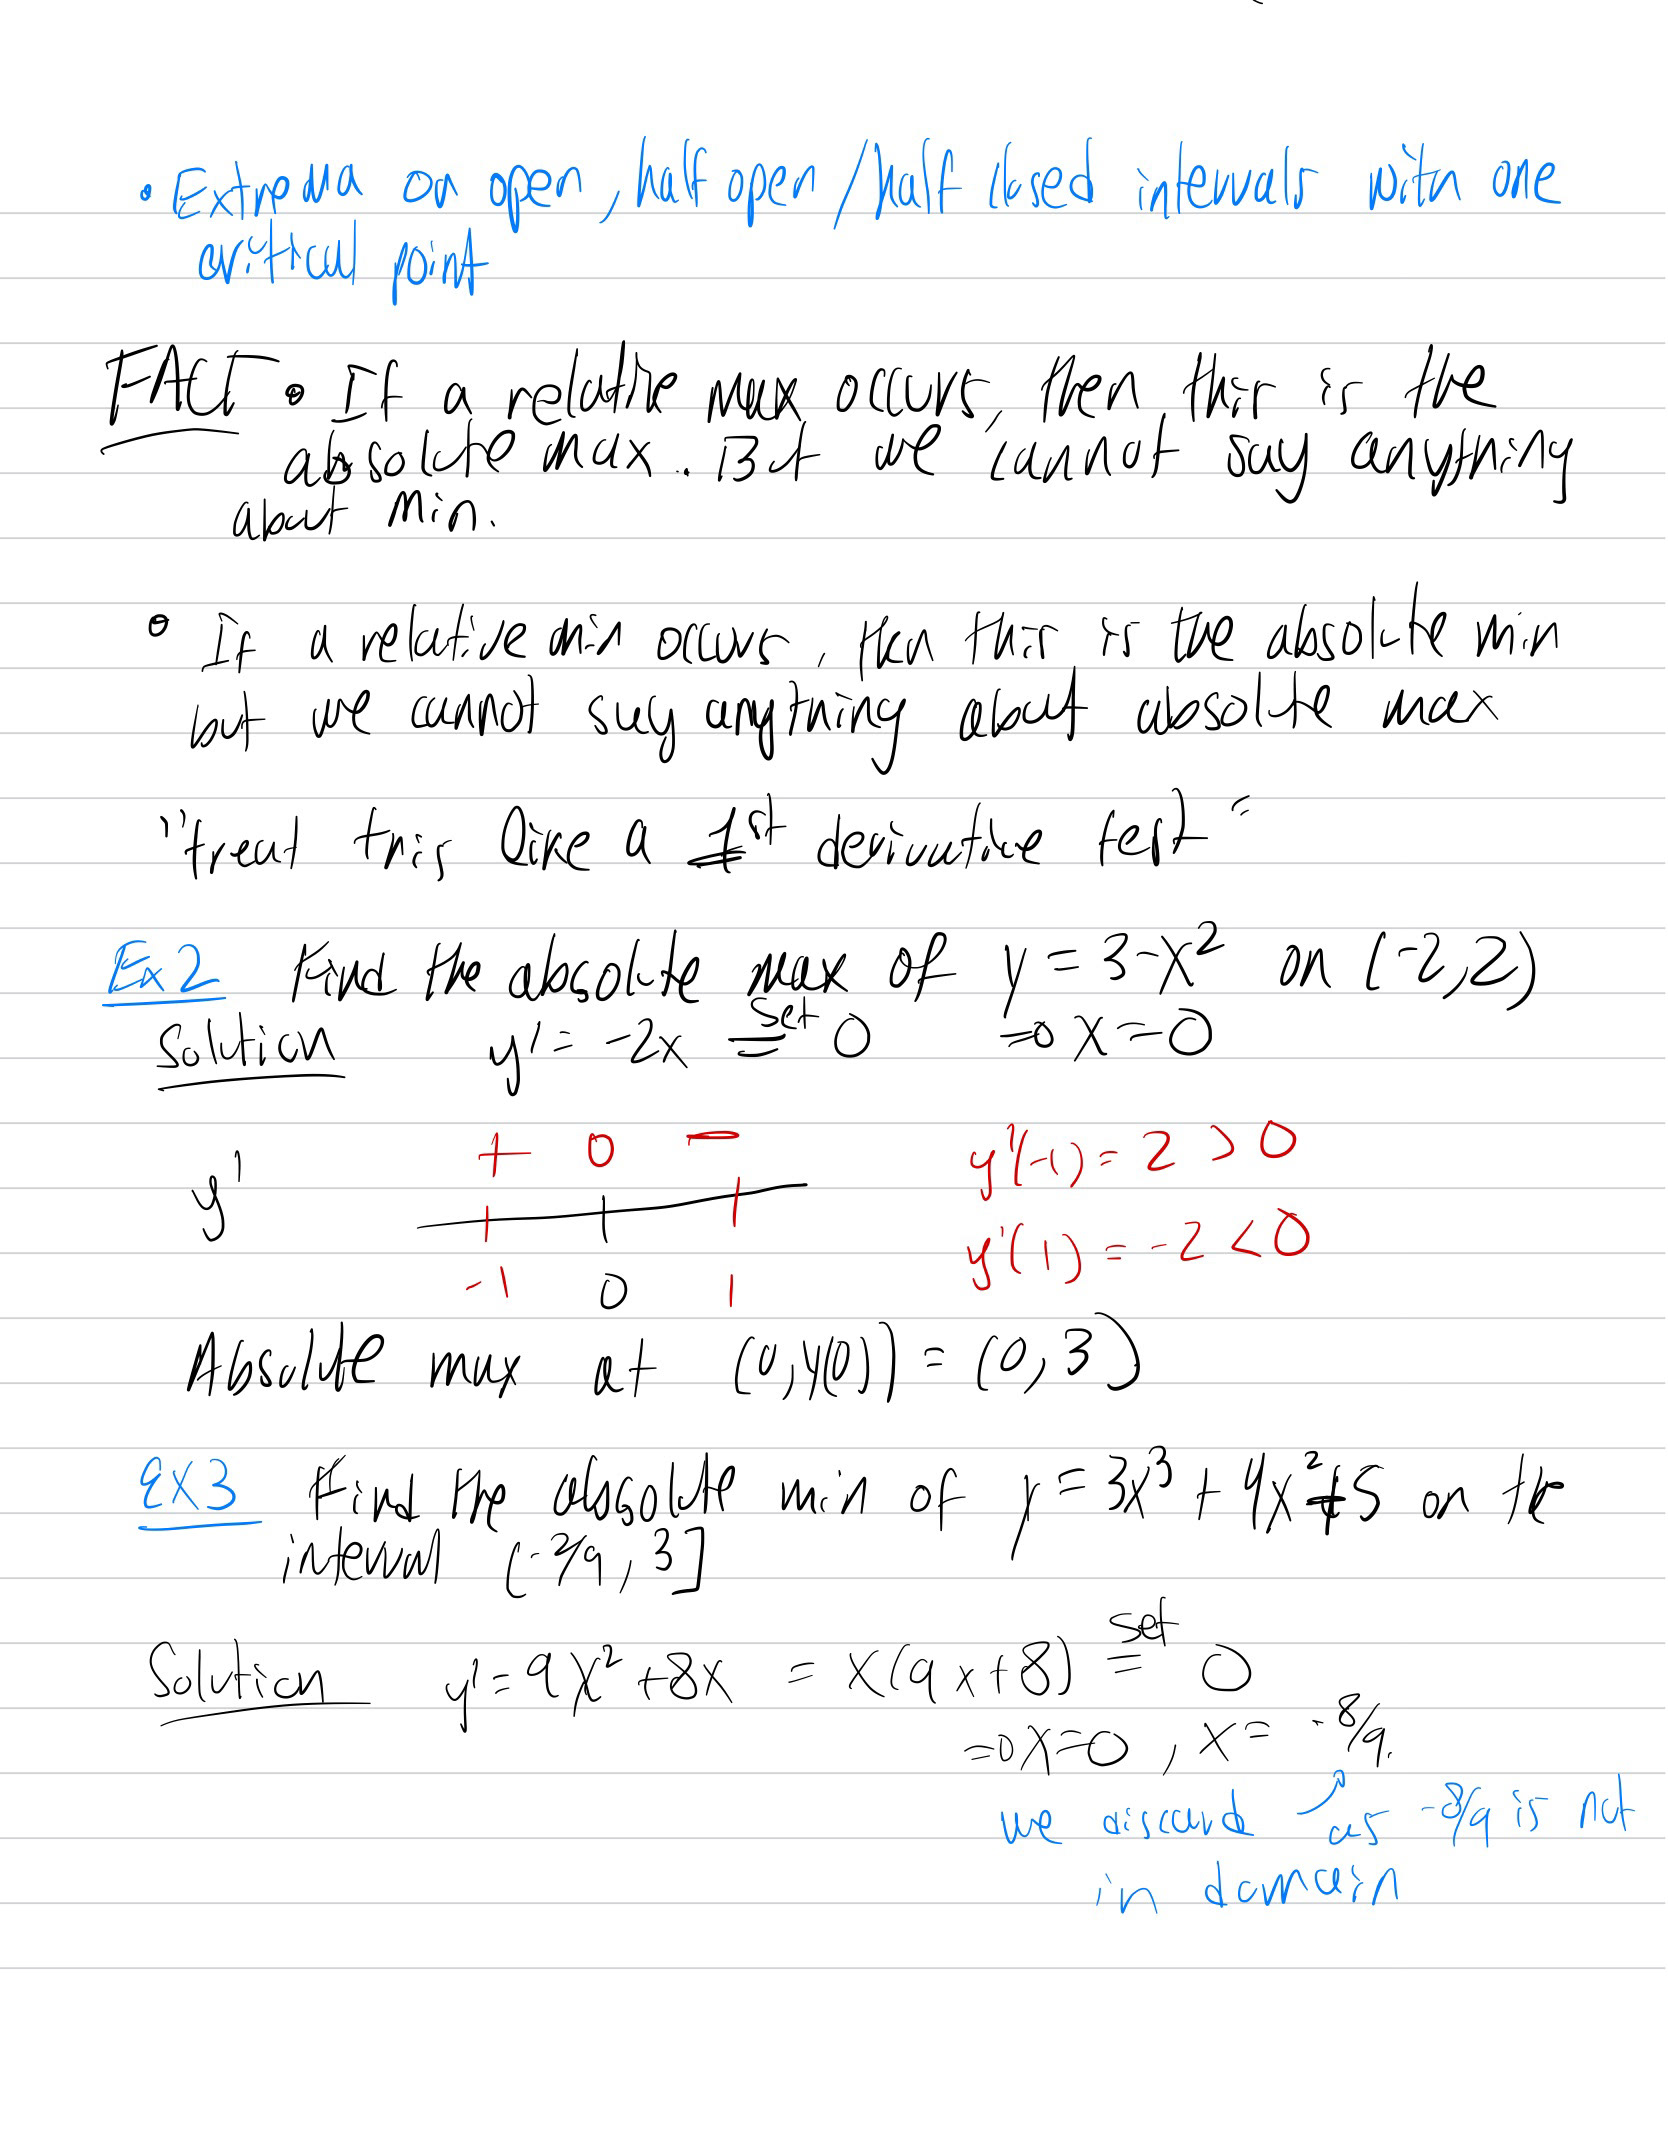 • Extrema on open, half open / half closed intervals with one
critical point
FACT • If a relative max occurs, then this is the
absolute max. But we cannot say anything
about min.
• If a relative min occurs, then this is the absolute min
but we cannot say anything about absolute max
"treat this like a 1st derivative test"
Ex 2 Find the absolute max of y = 3-x² on (-2,2)
Solution y' = -2x set = 0 ⇒ x=0
+ 0 − y'(-1) = 2 > 0
y'
-1 0 1 y'(1) = -2 < 0
Absolute max at (0, y(0)) = (0, 3)
Ex 3 Find the absolute min of y = 3x³ + 4x² + 5 on the
interval (-2/9, 3]
Solution y' = 9x² + 8x = x(9x+8) set = 0
⇒ x=0, x = -8/9.
we discard as -8/9 is not
in domain